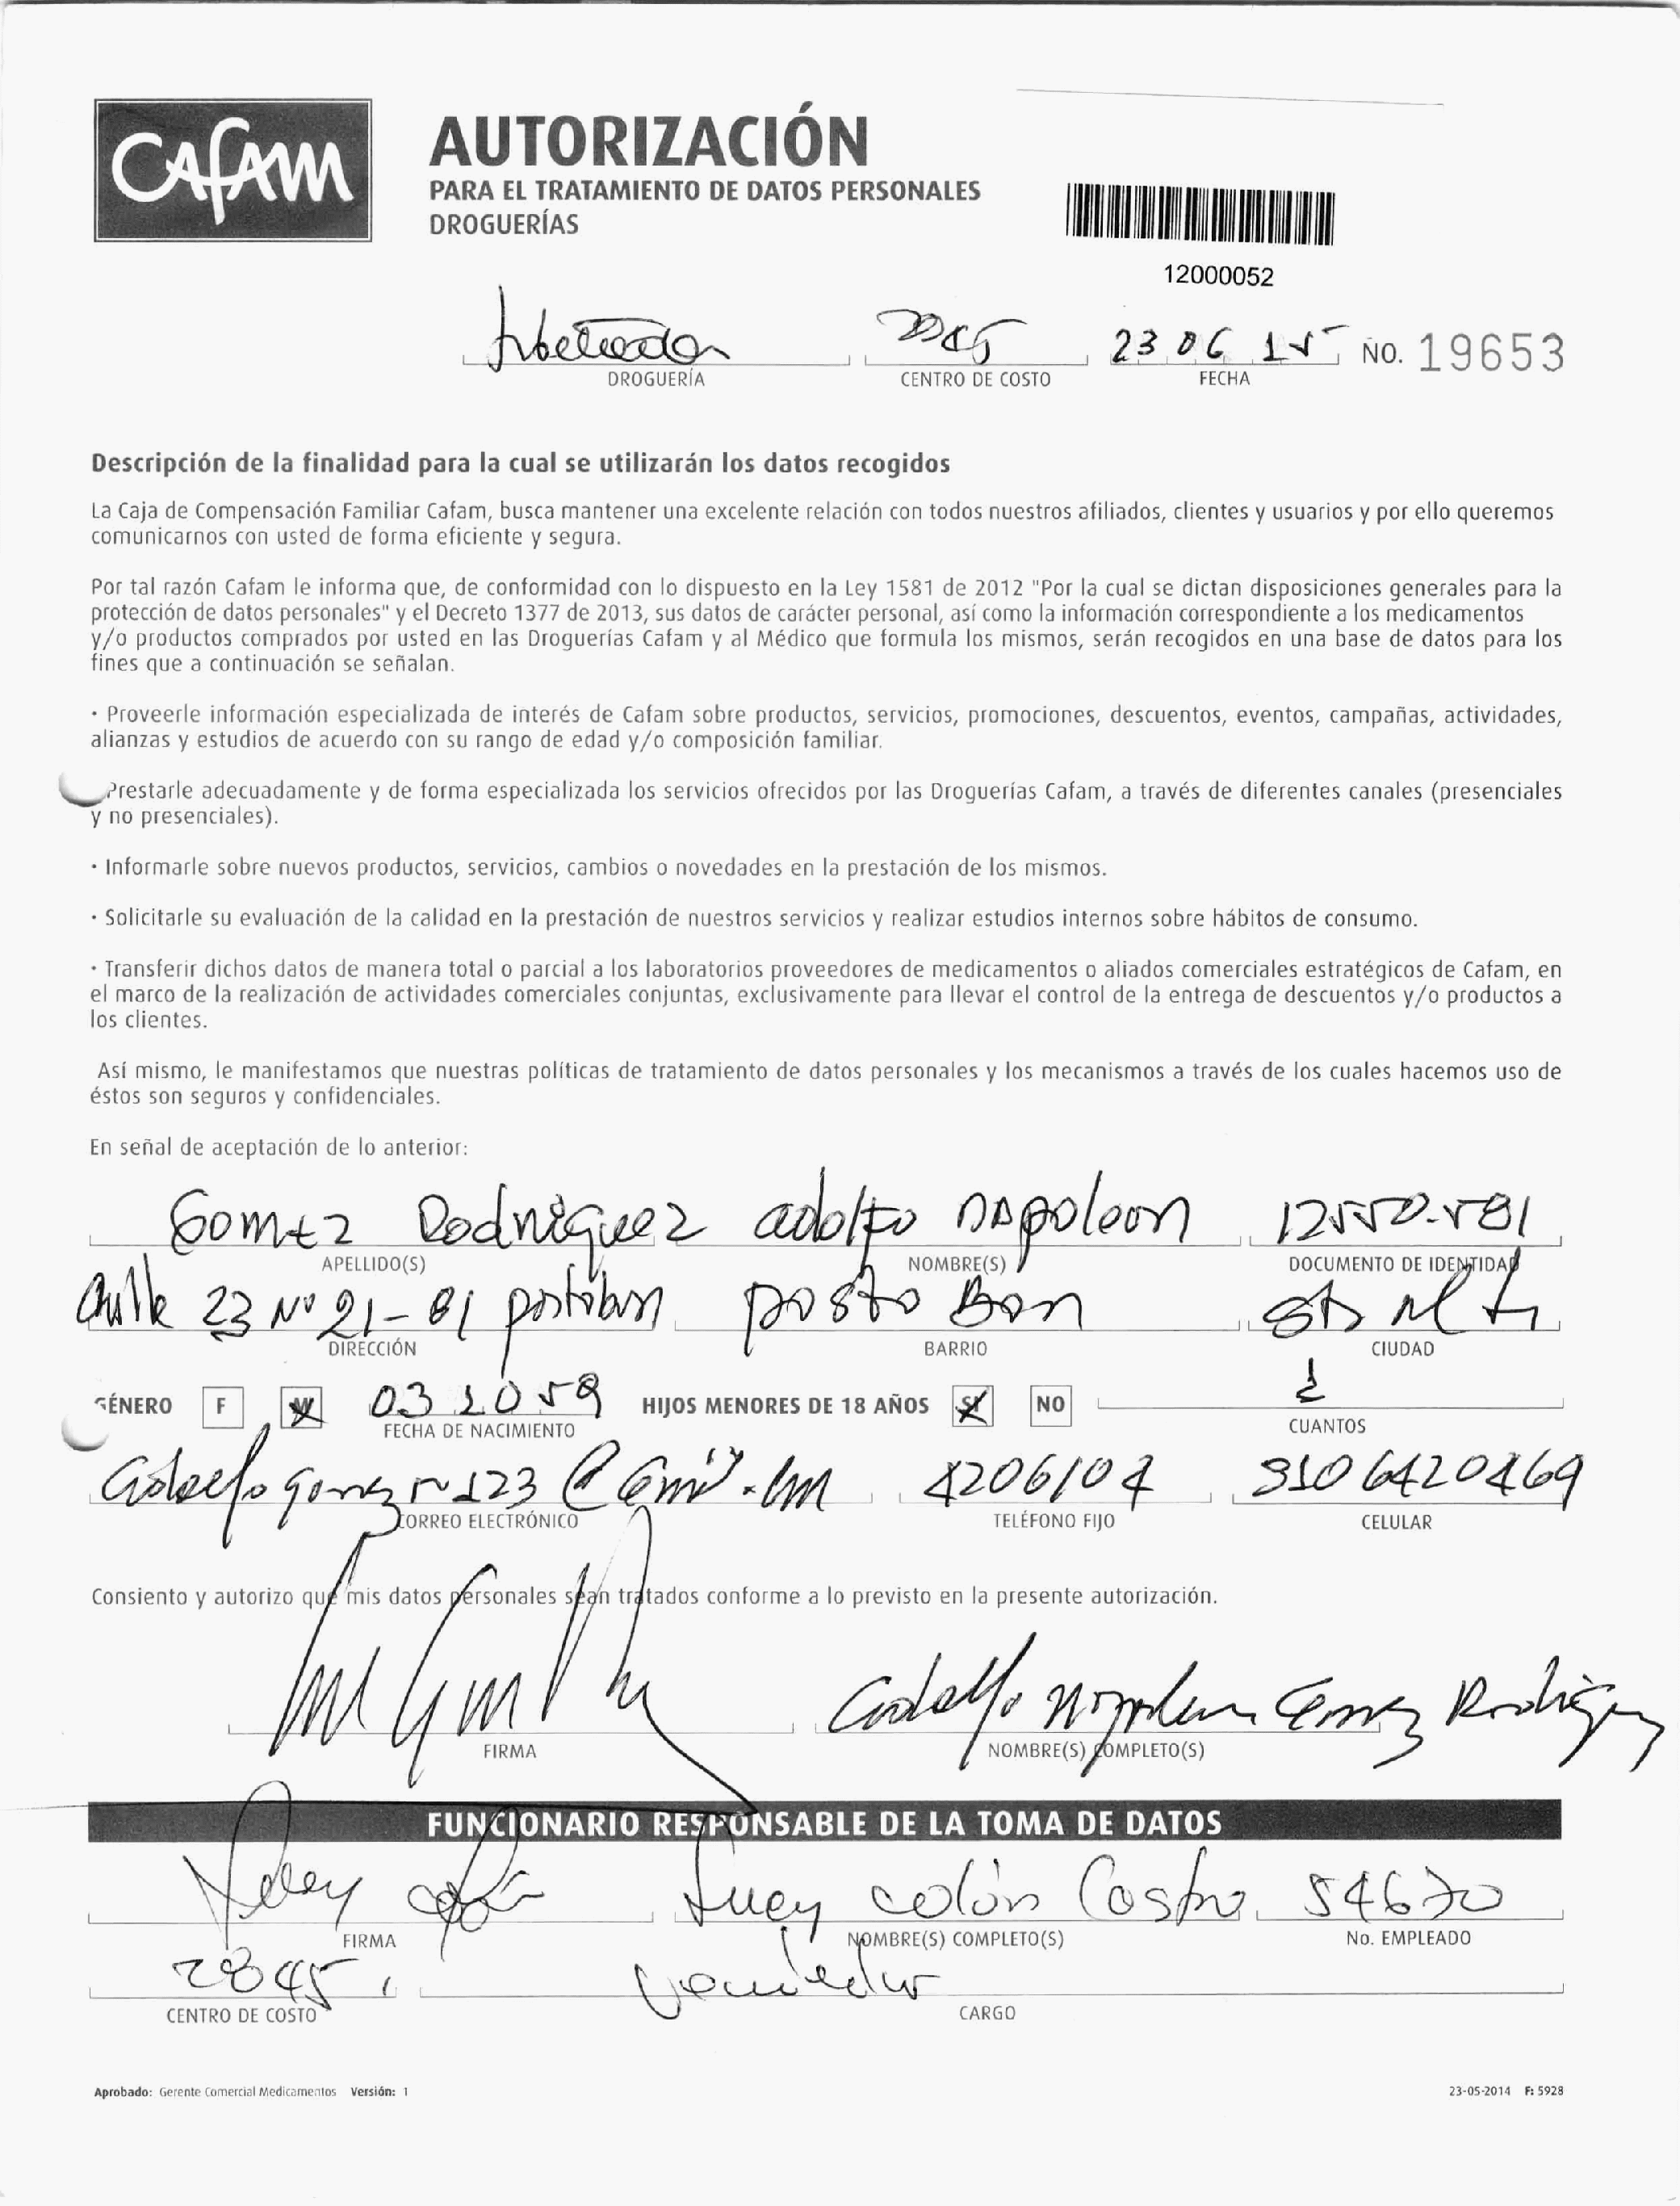 CAFAM
AUTORIZACIÓN
PARA EL TRATAMIENTO DE DATOS PERSONALES
DROGUERÍAS
12000052
23 06 15 NO. 19653
DROGUERÍA CENTRO DE COSTO FECHA
Descripción de la finalidad para la cual se utilizarán los datos recogidos
La Caja de Compensación Familiar Cafam, busca mantener una excelente relación con todos nuestros afiliados, clientes y usuarios y por ello queremos
comunicarnos con usted de forma eficiente y segura.
Por tal razón Cafam le informa que, de conformidad con lo dispuesto en la Ley 1581 de 2012 "Por la cual se dictan disposiciones generales para la
protección de datos personales" y el Decreto 1377 de 2013, sus datos de carácter personal, así como la información correspondiente a los medicamentos
y/o productos comprados por usted en las Droguerías Cafam y al Médico que formula los mismos, serán recogidos en una base de datos para los
fines que a continuación se señalan.
· Proveerle información especializada de interés de Cafam sobre productos, servicios, promociones, descuentos, eventos, campañas, actividades,
alianzas y estudios de acuerdo con su rango de edad y/o composición familiar.
Prestarle adecuadamente y de forma especializada los servicios ofrecidos por las Droguerías Cafam, a través de diferentes canales (presenciales
y no presenciales).
· Informarle sobre nuevos productos, servicios, cambios o novedades en la prestación de los mismos.
· Solicitarle su evaluación de la calidad en la prestación de nuestros servicios y realizar estudios internos sobre hábitos de consumo.
· Transferir dichos datos de manera total o parcial a los laboratorios proveedores de medicamentos o aliados comerciales estratégicos de Cafam, en
el marco de la realización de actividades comerciales conjuntas, exclusivamente para llevar el control de la entrega de descuentos y/o productos a
los clientes.
Así mismo, le manifestamos que nuestras políticas de tratamiento de datos personales y los mecanismos a través de los cuales hacemos uso de
éstos son seguros y confidenciales.
En señal de aceptación de lo anterior:
Gomez Rodriguez adolfo napoleon 12550.581
APELLIDO(S) NOMBRE(S) DOCUMENTO DE IDENTIDAD
Calle 23 Nº 21-81 postobon posto Bon
DIRECCIÓN BARRIO CIUDAD
GÉNERO F M 03 10 59 HIJOS MENORES DE 18 AÑOS SI NO 1
FECHA DE NACIMIENTO CUANTOS
4206104 3106420469
CORREO ELECTRÓNICO TELÉFONO FIJO CELULAR
Consiento y autorizo que mis datos personales sean tratados conforme a lo previsto en la presente autorización.
Adolfo Napoleon Gomez Rodriguez
FIRMA NOMBRE(S) COMPLETO(S)
FUNCIONARIO RESPONSABLE DE LA TOMA DE DATOS
Lucy Colón Castro 54670
FIRMA NOMBRE(S) COMPLETO(S) No. EMPLEADO
2845 Vendedor
CENTRO DE COSTO CARGO
Aprobado: Gerente Comercial Medicamentos Versión: 1 23-05-2014 F: 5928